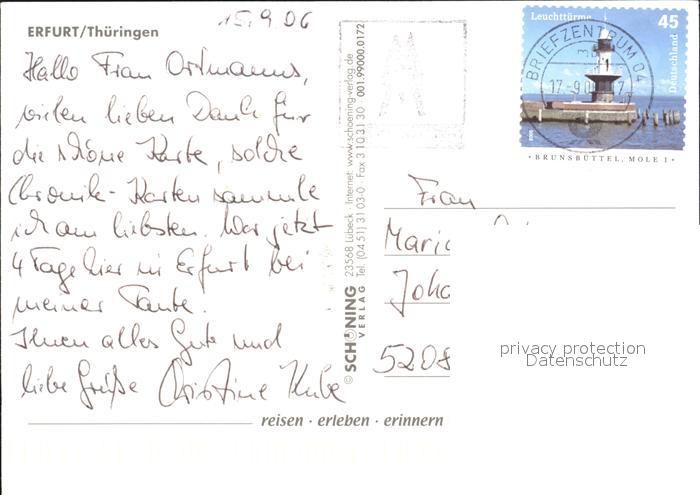 ERFURT/Thüringen
15.9.06
Hallo Frau Ortmanns,
vielen lieben Dank für
die schöne Karte, solche
Chronik-Karten sammle
ich am liebsten. War jetzt
4 Tage hier in Erfurt bei
meiner Tante.
Ihnen alles Gute und
liebe Grüße Christine Kube
reisen · erleben · erinnern
© SCHÖNING VERLAG
23568 Lübeck · Internet: www.schoening-verlag.de
Tel. (0451) 3103-0 · Fax 3103130 001-99000.0172
Leuchttürme
45
Deutschland
BRIEFZENTRUM 04
17.-9.0
· BRUNSBÜTTEL, MOLE 1 ·
Frau
Maric
Joha
5208
privacy protection
Datenschutz